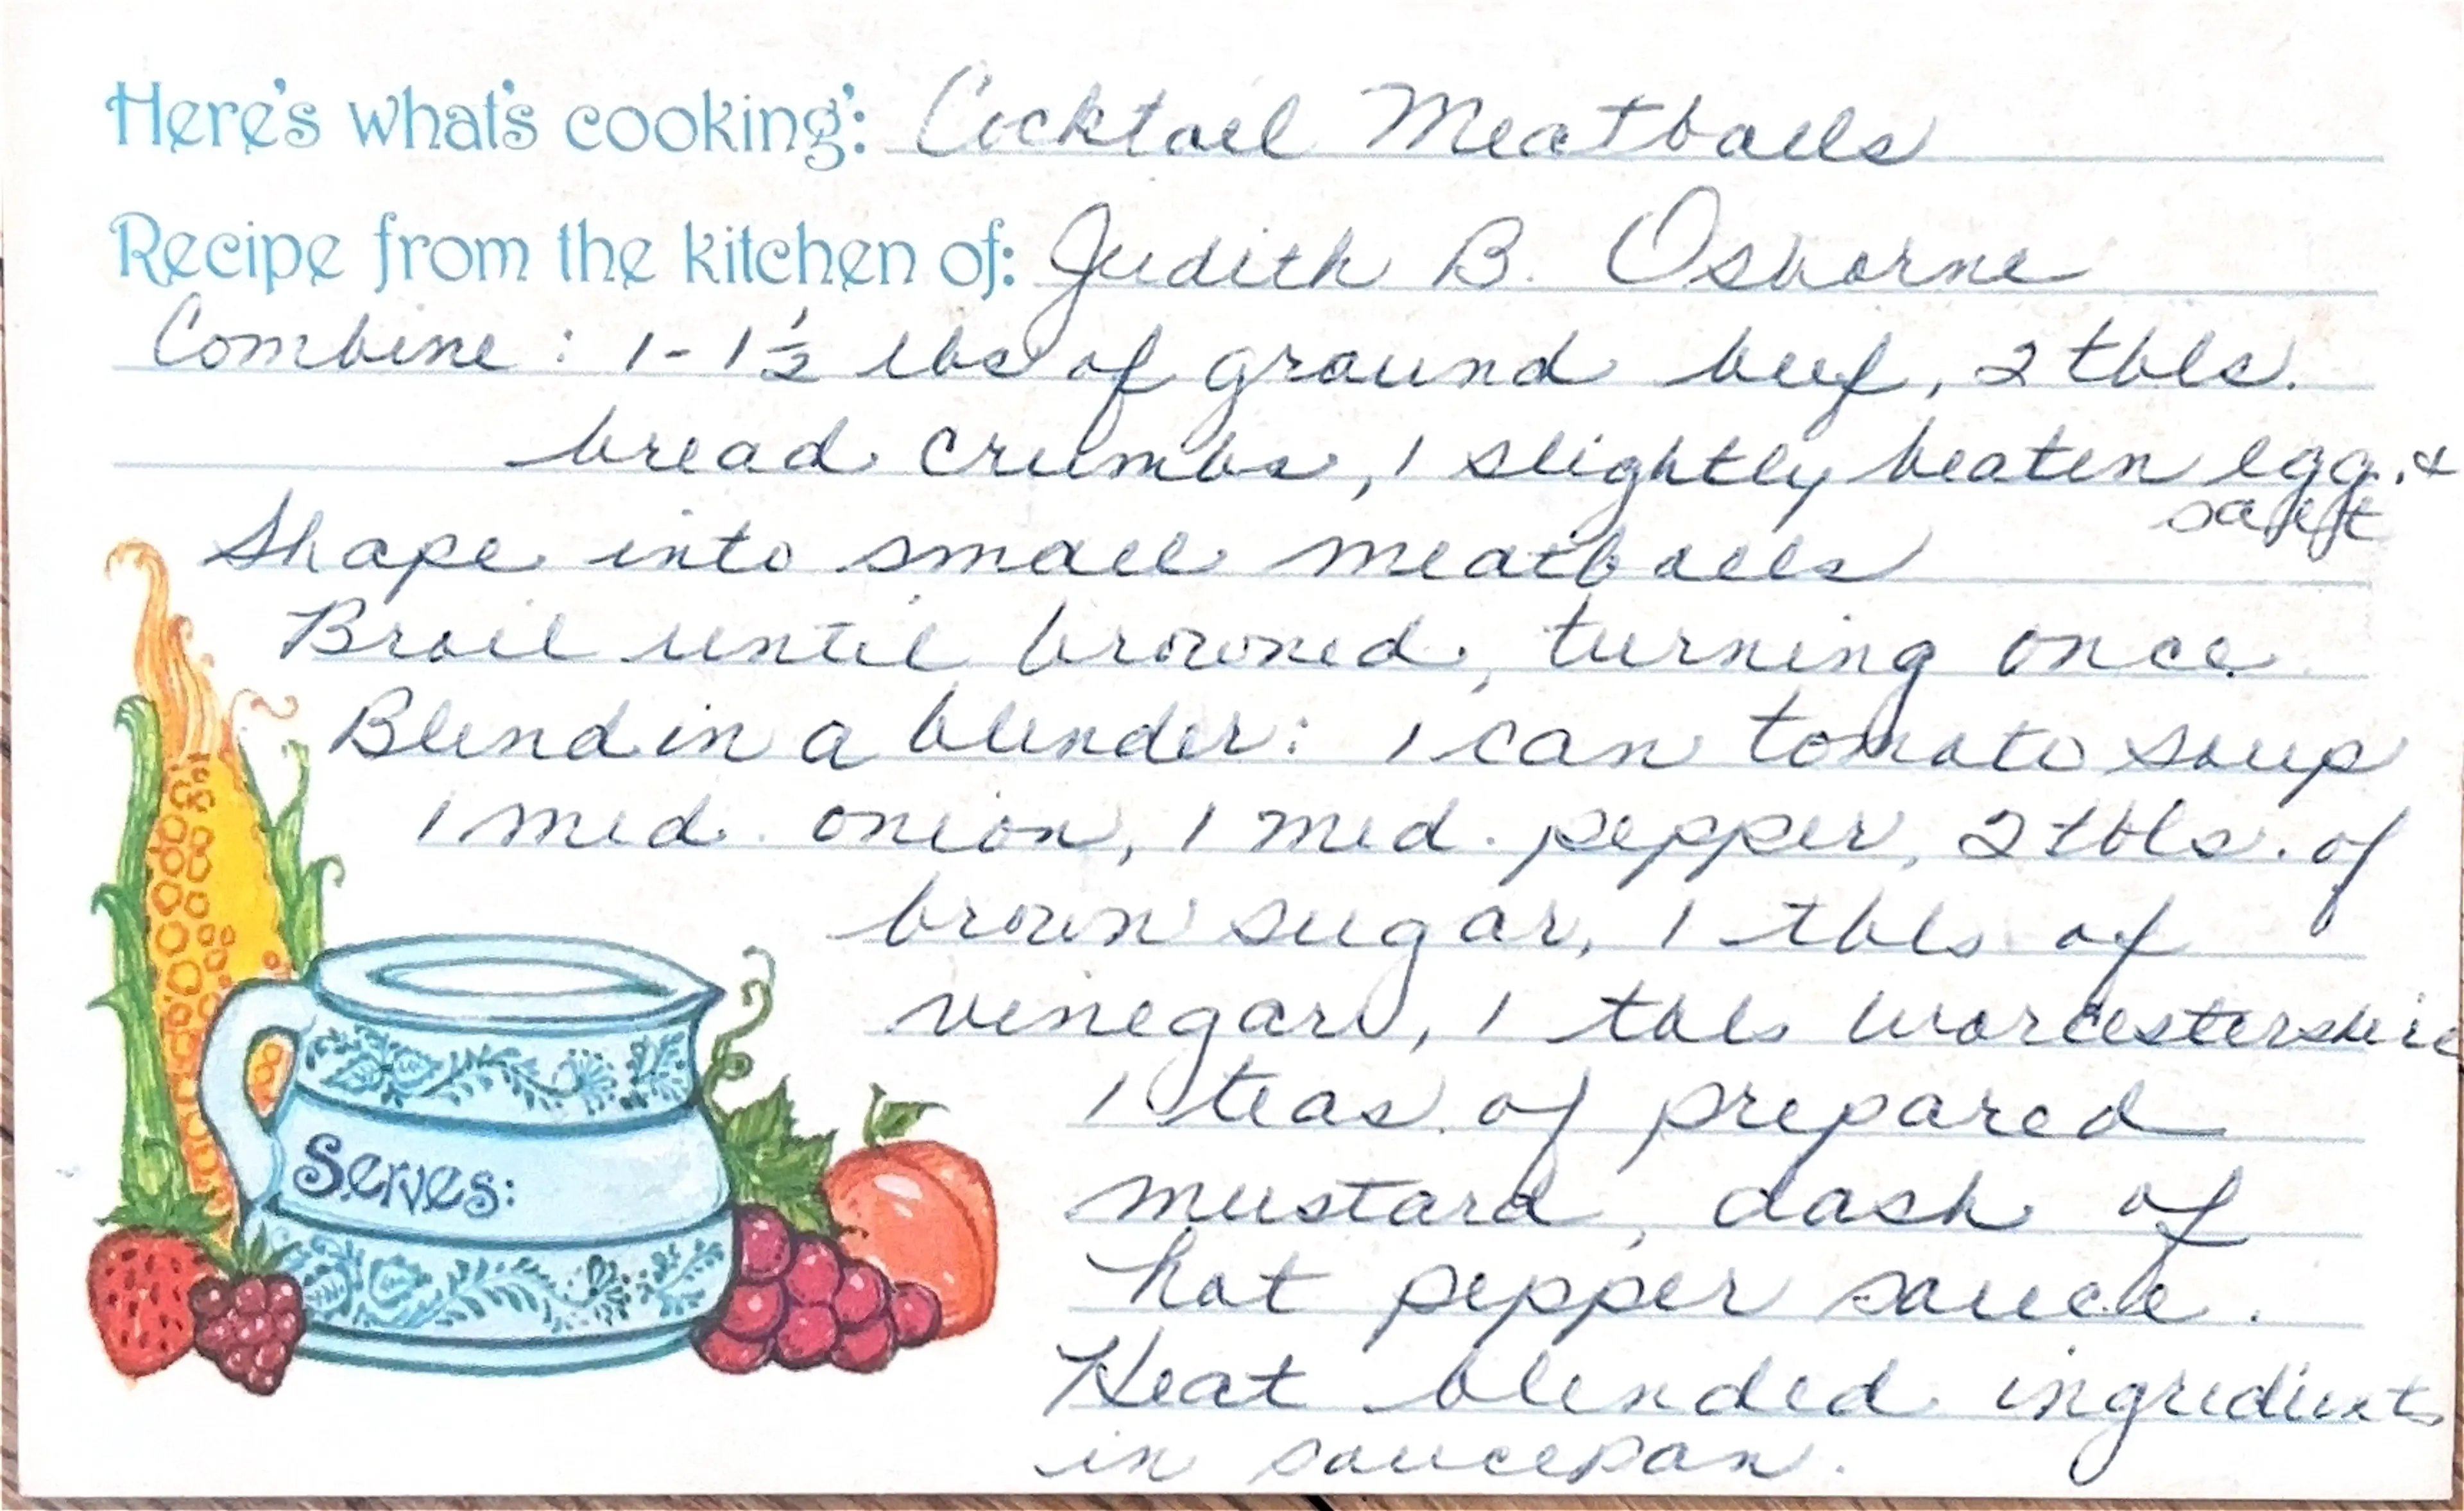 Here's what's cooking: Cocktail Meatballs
Recipe from the kitchen of: Judith B. Osborne
Combine : 1-1½ lbs of ground beef, 2 tbls.
bread crumbs, 1 slightly beaten egg. &
salt
Shape into small meatballs
Broil until browned, turning once.
Blend in a blender: 1 can tomato soup
1 med. onion, 1 med. pepper, 2 tbls. of
brown sugar, 1 tbls of
vinegar, 1 tbls worcestershire
1 teas. of prepared
mustard, dash of
hot pepper sauce.
Heat blended ingredients
in saucepan.
Serves: